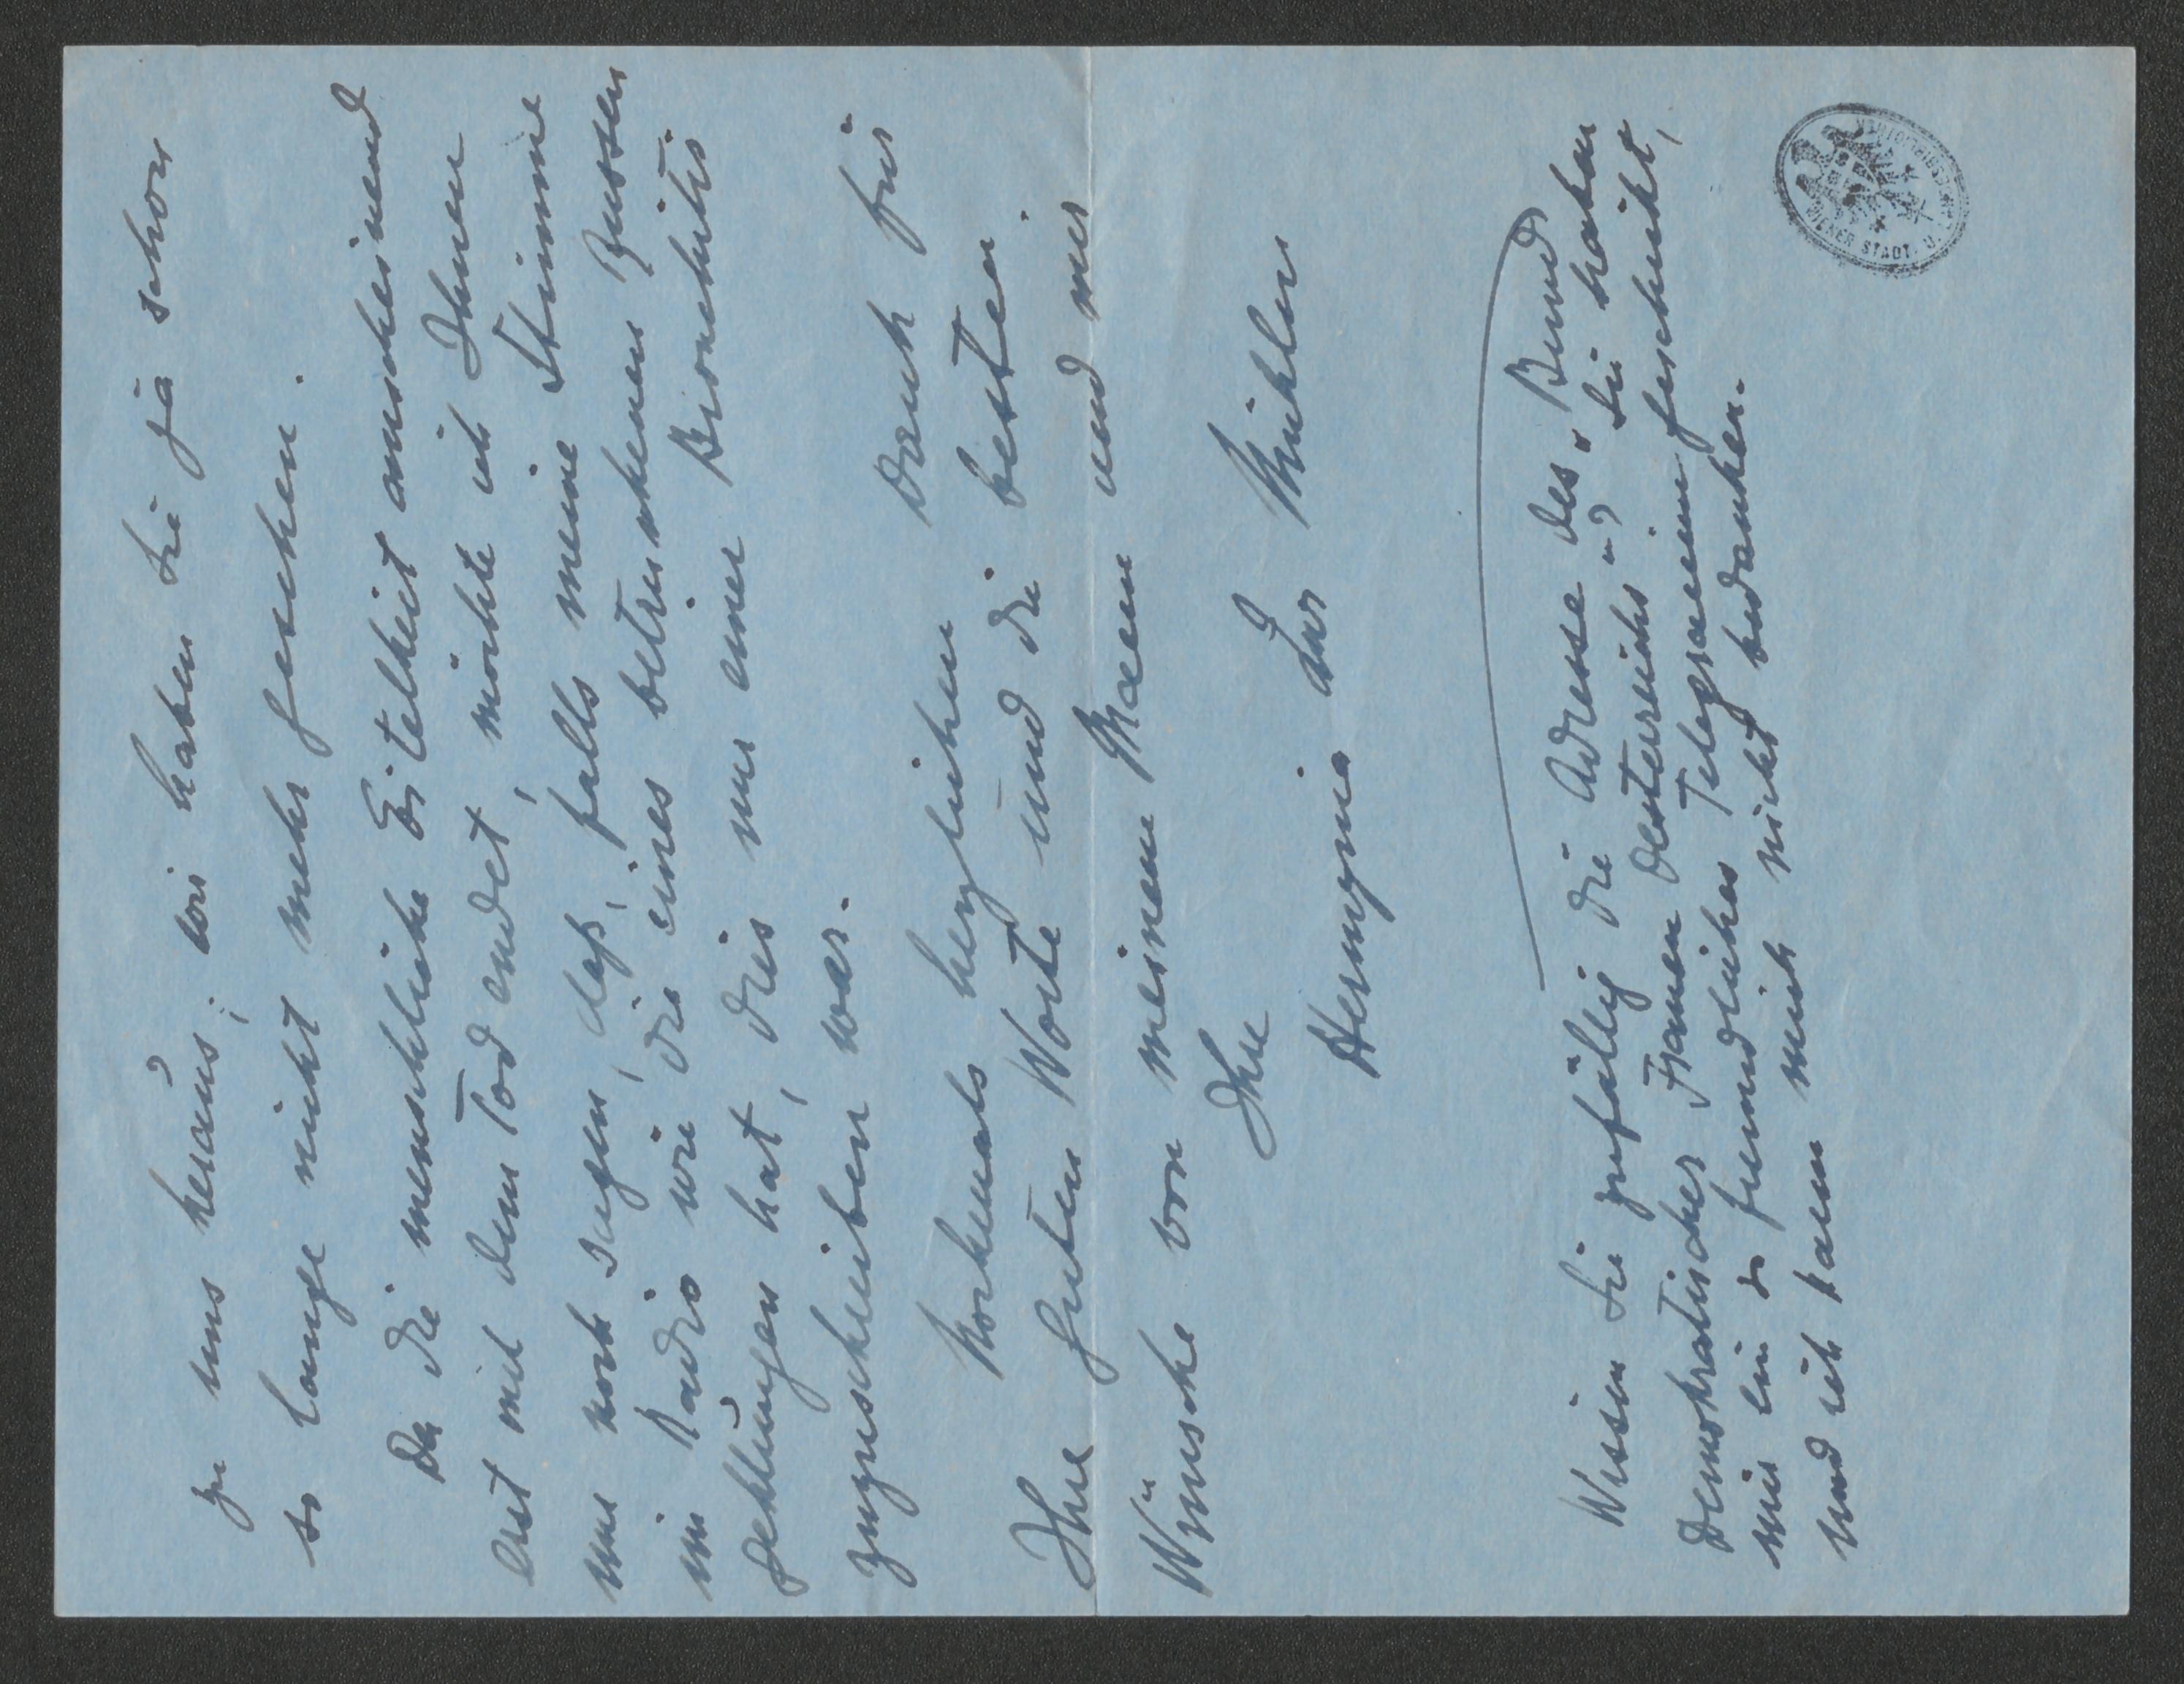 zu uns heraus; wir haben Sie ja schon
so lange nicht mehr gesehen.
Da die menschliche Eitelkeit anscheinend
erst mit dem Tod endet, möchte ich Ihnen
nur noch sagen, daß, falls meine Stimme
im Radio wie die eines betrunkenen Russen
geklungen hat, dies nur einer Bronchitis
zuzuschreiben war.
Nochmals herzlichen Dank für
Ihre guten Worte und die besten
Wünsche von meinem Mann und mir
Ihre
Hermynia Zur Mühlen
Wissen Sie zufällig die Adresse des „Bund
Demokratischer Frauen Oesterreichs"? Sie haben
mir ein so freundliches Telegramm geschickt,
und ich kann mich nicht bedanken.
WIENER STADT- U.